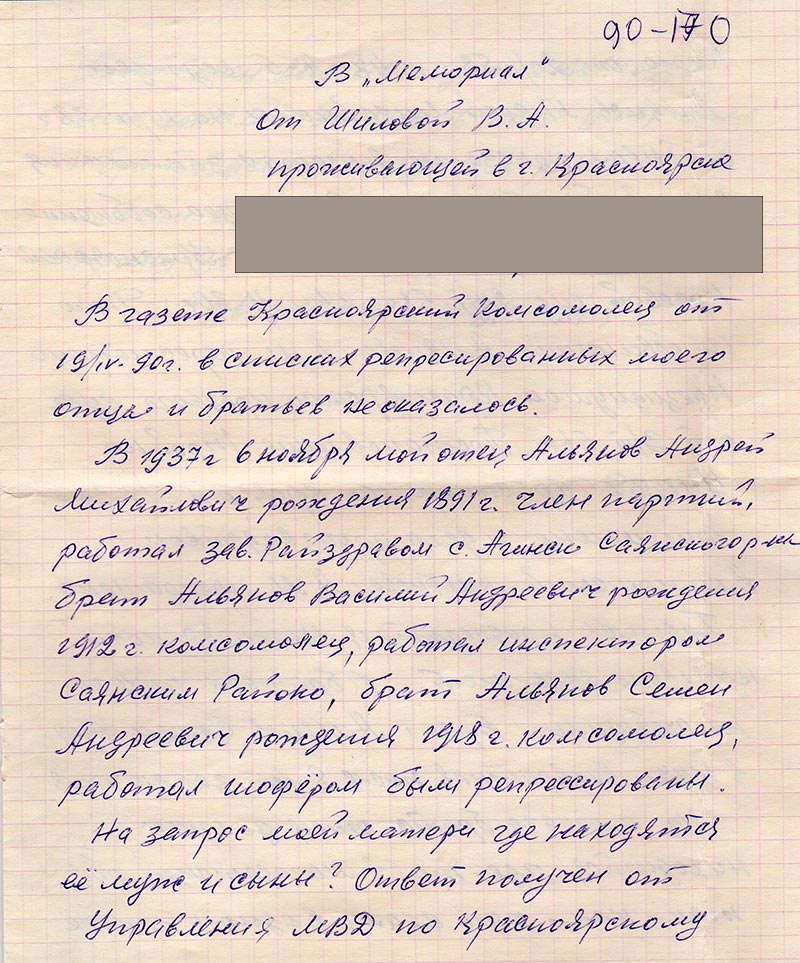 90-170
В „Мемориал"
От Шиловой В. А.
проживающей в г. Красноярске
В газете Красноярский Комсомолец от
19/IV-90г. в списках репресированных моего
отца и братьев не оказалось.
В 1937г в ноября мой отец Альянов Андрей
Михайлович рождения 1891г. член партии,
работал зав. Райздравом с. Агинск Саянского р-на
брат Альянов Василий Андреевич рождения
1912 г. комсомолец, работал инспектором
Саянским Районо, брат Альянов Семен
Андреевич рождения 1918 г. комсомолец,
работал шофёром были репрессированы.
На запрос моей матери где находятся
её муж и сыны? Ответ получен от
Управления МВД по Красноярскому